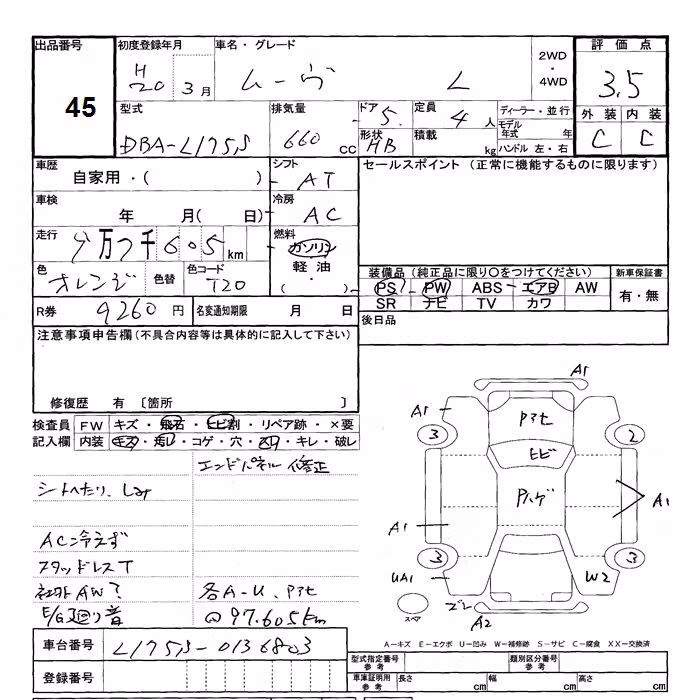 出品番号 初度登録年月 車名・グレード 2WD・4WD 評価点
45 H20 3月 ムーヴ L 3.5
型式 排気量 ドア 5 定員 4人 ディーラー・並行 外装 内装
DBA-L175S 660cc 形状 HB 積載 kg モデル年式 年 C C
ハンドル 左・右
車歴 シフト セールスポイント (正常に機能するものに限ります)
自家用・( ) AT
車検 冷房
年 月( 日) AC
走行 燃料
9万7千605km ガソリン
軽油
・( )
色 色替 色コード 装備品 (純正品に限り○をつけてください) 新車保証書
オレンジ T20 PS PW ABS エアB AW 有・無
SR ナビ TV カワ
R券 9260円 名変通知期限 月 日 後日品
注意事項申告欄(不具合内容等は具体的に記入して下さい)
修復歴 有 〔箇所 〕
検査員 FW キズ・飛石・ヒビ割・リペア跡・×要
記入欄 内装 キズ・汚レ・コゲ・穴・スレ・キレ・破レ
エンドパネル修正
シートへたり、
AC冷えず
スタッドレスT
社外AW?
各A-U、Pアセ
E/G廻り音
@97.605km
A1
A1 Pアセ
3 2
ヒビ
Pハゲ A1
A1
3 3
UA1 W2
スペア A2
A-キズ E-エクボ U-凹み W-補修跡 S-サビ C-腐食 XX-交換済
車台番号 L175S-0136803
型式指定番号 参考 類別区分番号 参考
登録番号 車庫証明用 参考 長さ cm 幅 cm 高さ cm